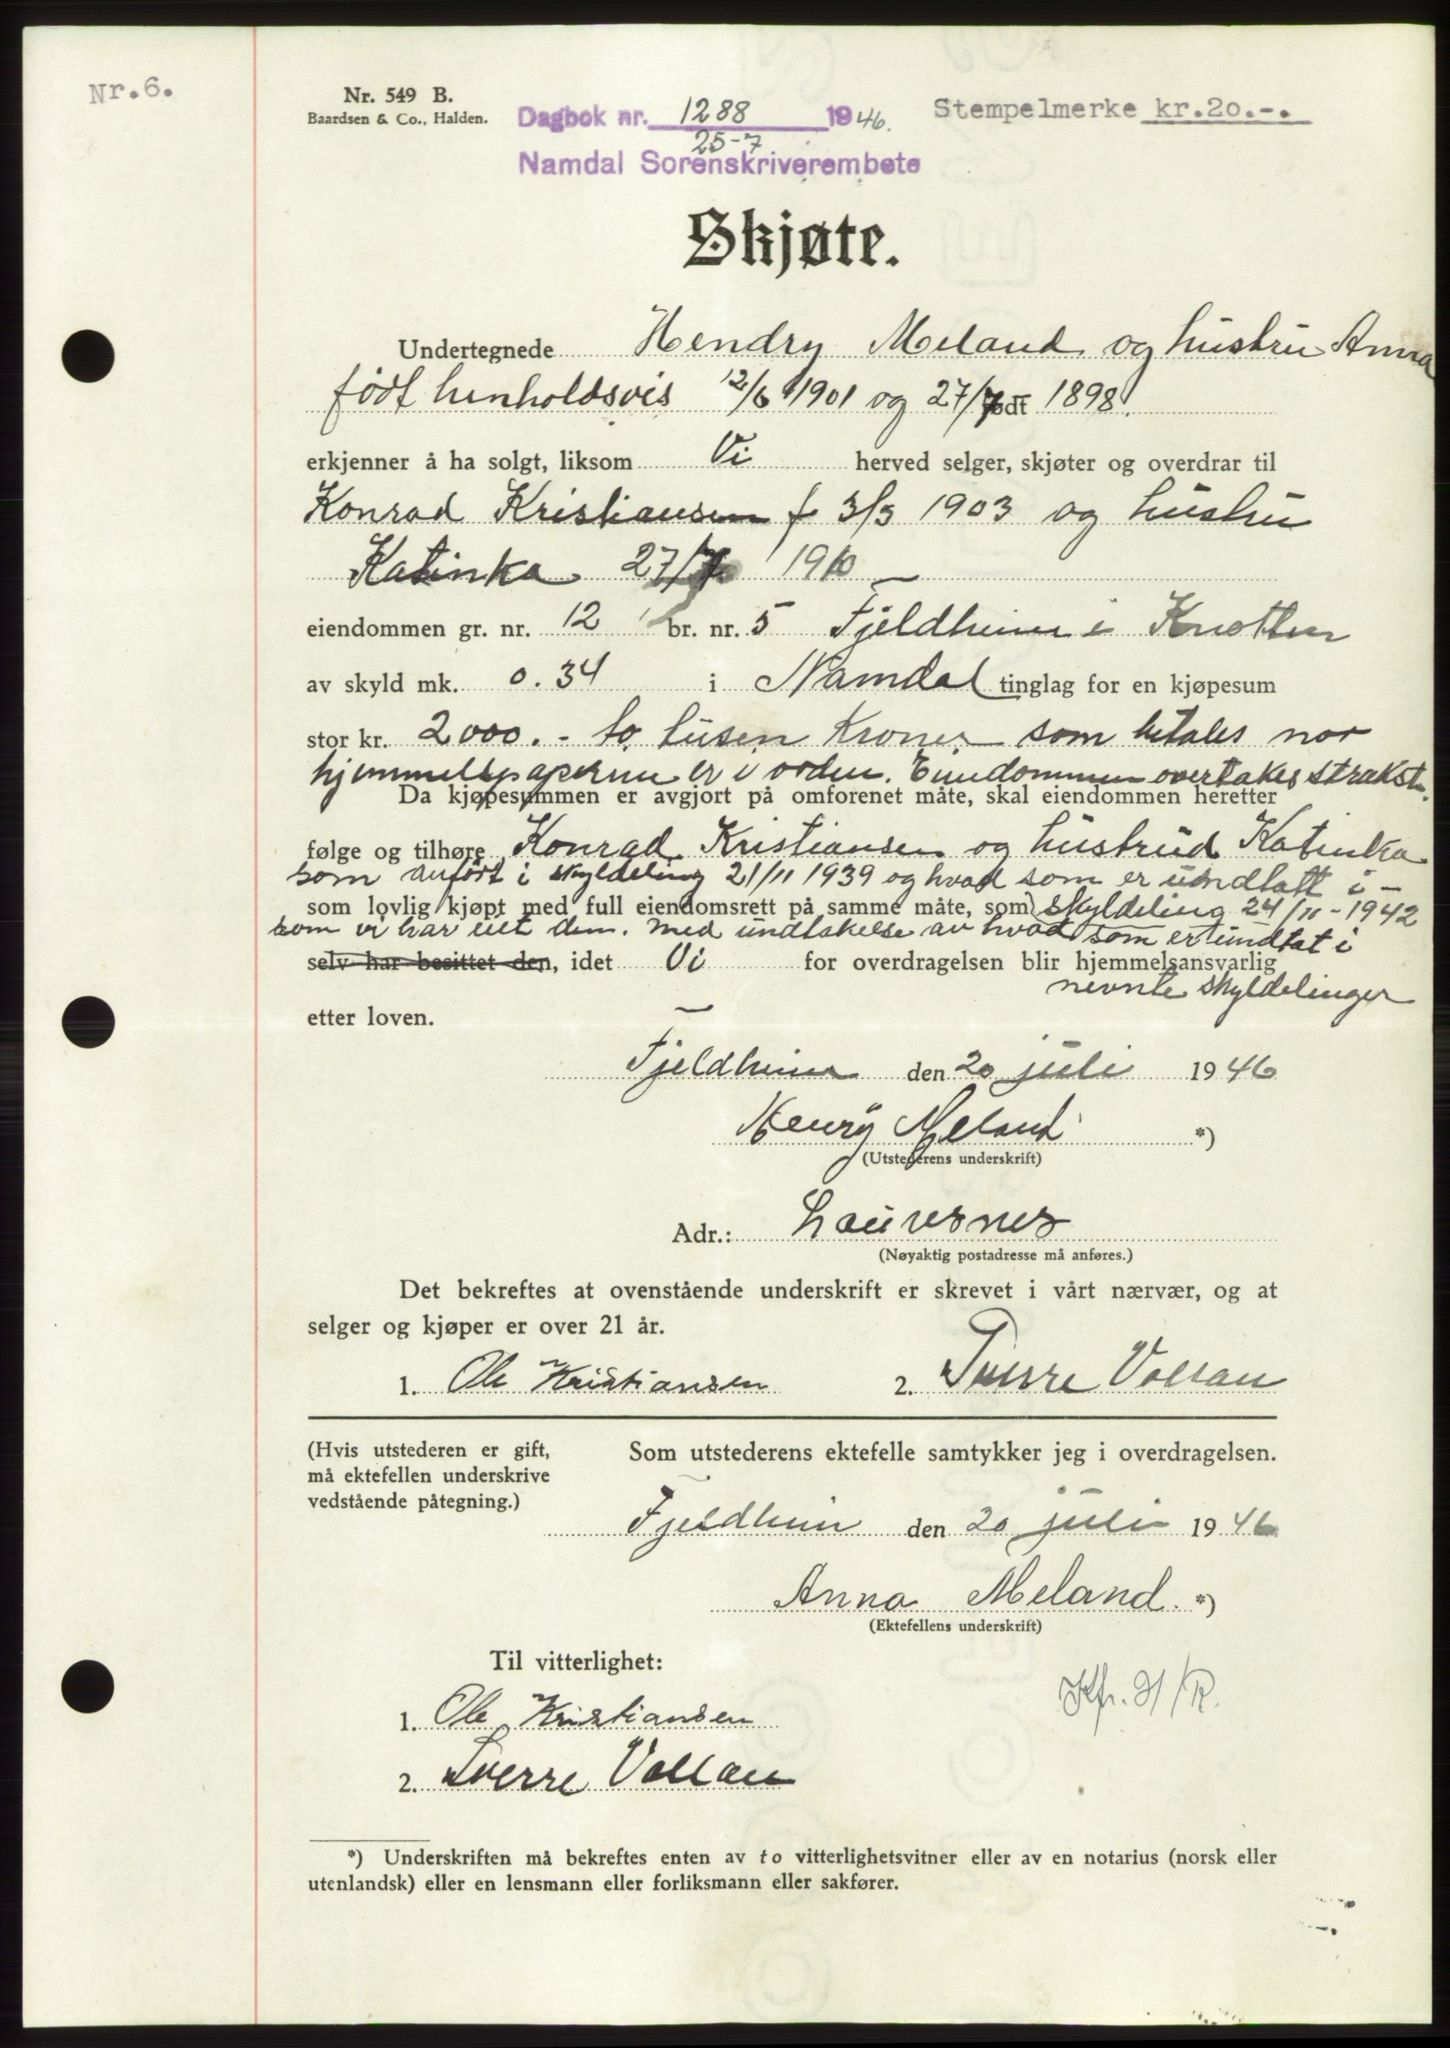 Nr.6.
Nr. 549 B.
Baardsen & Co., Halden.
Dagbok nr. 1288 1946.
25-7
Namdal Sorenskriverembete
Stempelmerke kr.20.-.
Skjøte.
Undertegnede Hendry Meland og hustru Anna
født henholdsvis 12/6 1901 og 27/7 født 1898.
erkjenner å ha solgt, liksom Vi herved selger, skjøter og overdrar til
Konrad Kristiansen f 3/3 1903 og hustru
Katinka 27/7 1910
eiendommen gr. nr. 12 br. nr. 5 Fjeldheim i
av skyld mk. 0.34 i Namdal tinglag for en kjøpesum
stor kr. 2000.- to tusen Kroner som betales nor
hjemmelspaperene er i orden. Eiendommen overtakes strakst.
Da kjøpesummen er avgjort på omforenet måte, skal eiendommen heretter
følge og tilhøre Konrad Kristiansen og hustrud Katinka
som anført i skyldeling 21/11 1939 og hvad som er undtatt i -
som lovlig kjøpt med full eiendomsrett på samme måte, som skyldeling 24/11-1942
som vi har eiet dem. Med undtakelse av hvad som er undtat i
selv har besittet den, idet Vi for overdragelsen blir hjemmelsansvarlig
nevnte skyldelinger
etter loven.
Fjeldheim den 20 juli 1946
Henry Meland *)
(Utstederens underskrift)
Adr.: Lauvsnes
(Nøyaktig postadresse må anføres.)
Det bekreftes at ovenstående underskrift er skrevet i vårt nærvær, og at
selger og kjøper er over 21 år.
1. Ole Kristiansen 2. Sverre Vollan
(Hvis utstederen er gift,
må ektefellen underskrive
vedstående påtegning.)
Som utstederens ektefelle samtykker jeg i overdragelsen.
Fjeldheim den 20 juli 1946
Anna Meland. *)
(Ektefellens underskrift)
Til vitterlighet:
Kfr. H/R.
1. Ole Kristiansen
2. Sverre Vollan
*) Underskriften må bekreftes enten av to vitterlighetsvitner eller av en notarius (norsk eller
utenlandsk) eller en lensmann eller forliksmann eller sakfører.